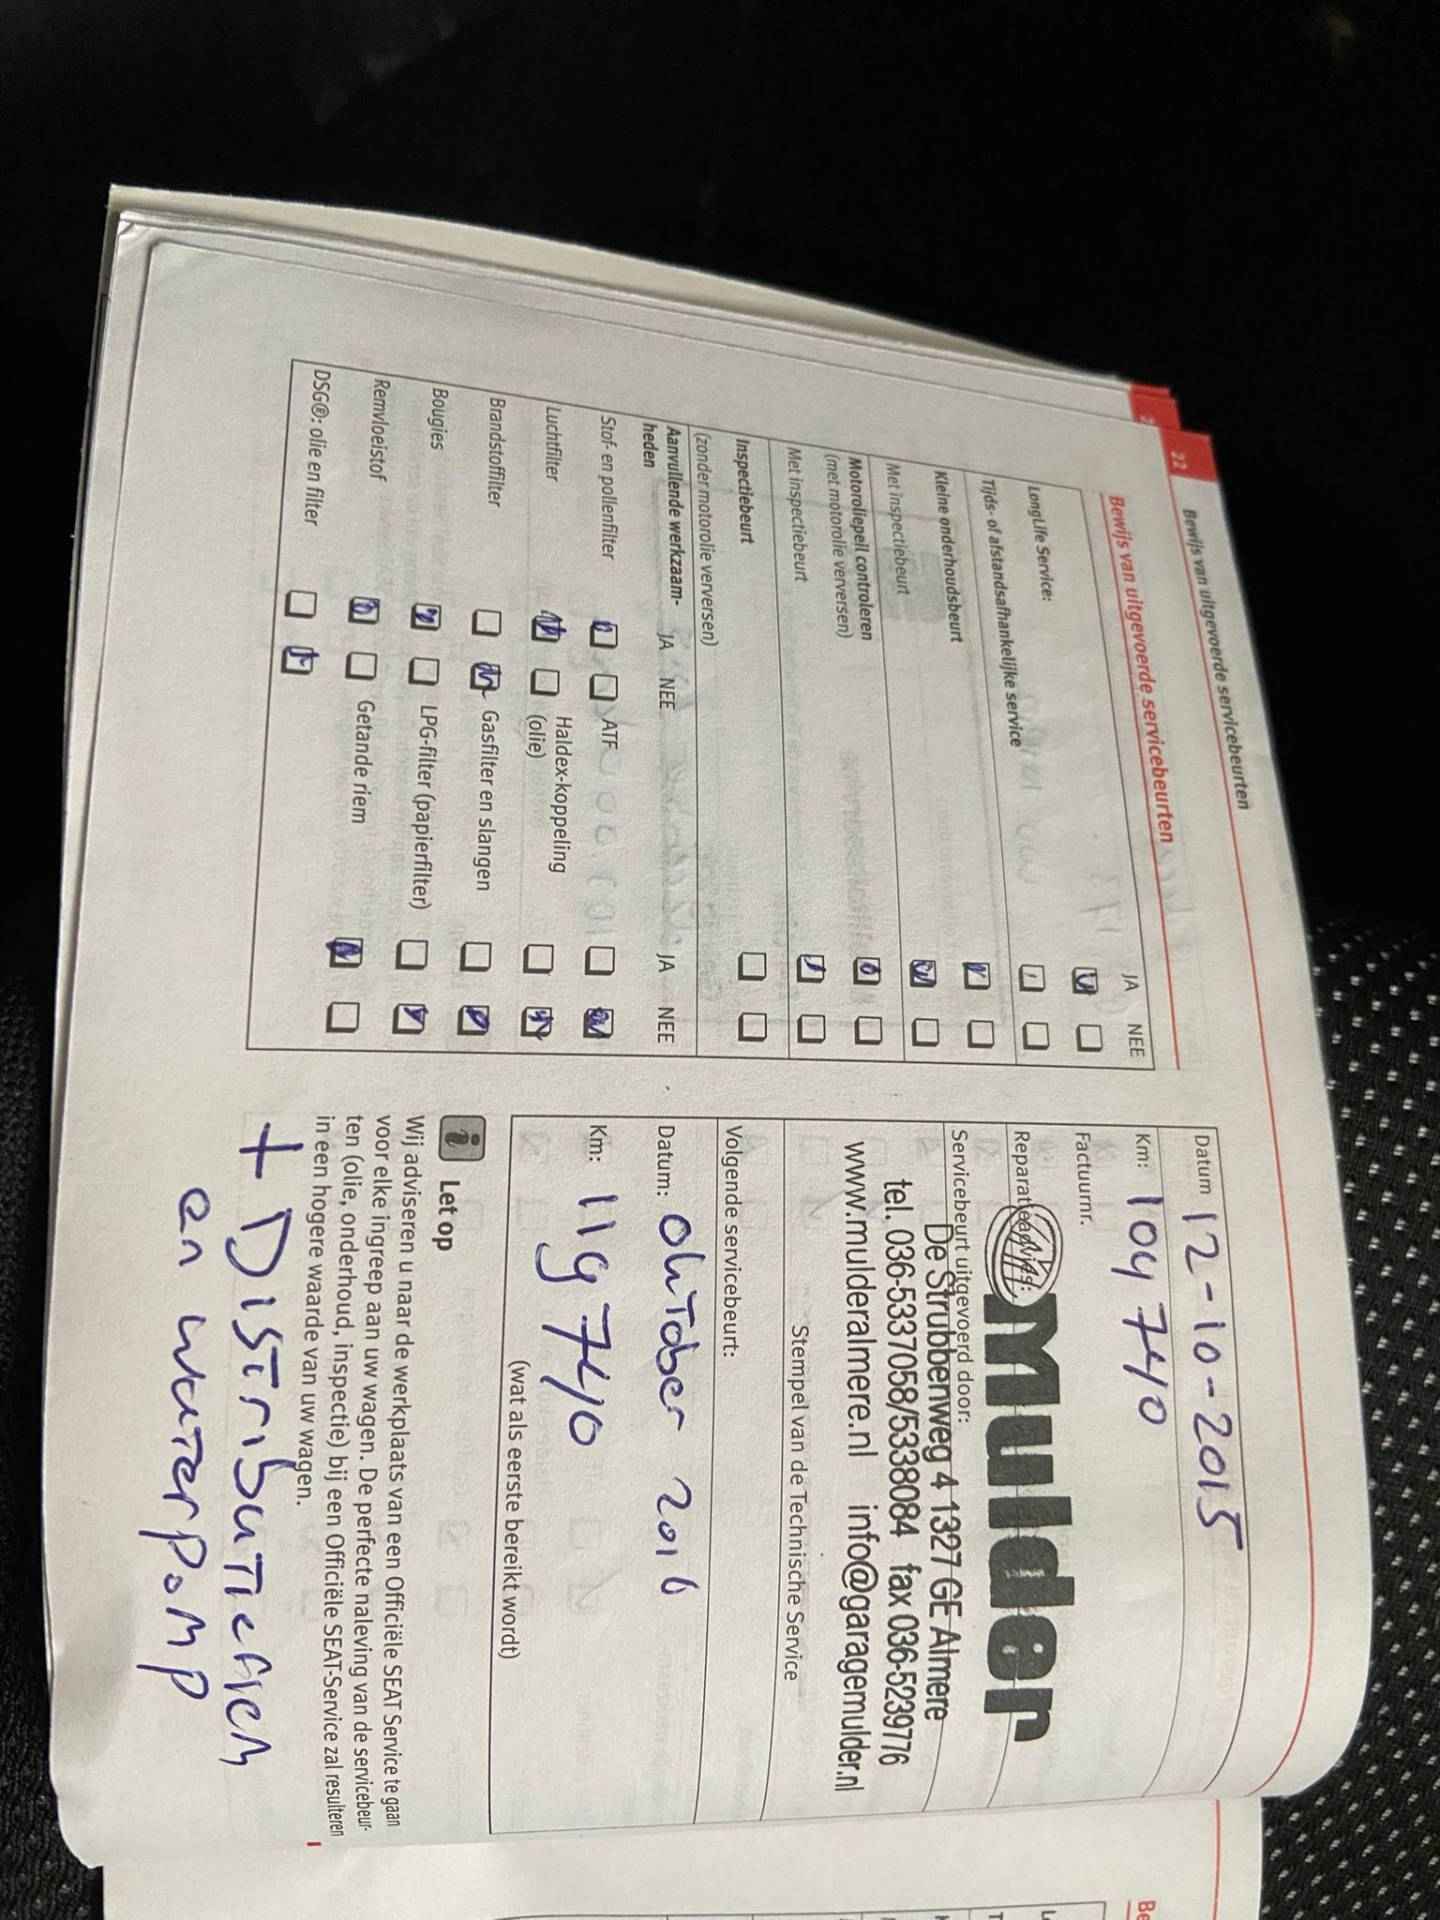 22
Bewijs van uitgevoerde servicebeurten
Bewijs van uitgevoerde servicebeurten
JA NEE
LongLife Service:
Tijds- of afstandsafhankelijke service
Kleine onderhoudsbeurt
Met inspectiebeurt
Motoroliepeil controleren
(met motorolie verversen)
Met inspectiebeurt
Inspectiebeurt
(zonder motorolie verversen)
Aanvullende werkzaam-
heden
JA NEE
JA NEE
Stof- en pollenfilter
ATF
Luchtfilter
Haldex-koppeling
(olie)
Brandstoffilter
Gasfilter en slangen
Bougies
LPG-filter (papierfilter)
Remvloeistof
Getande riem
DSG®: olie en filter
Datum 12-10-2015
Km: 104740
Factuurnr.
Mulder
Servicebeurt uitgevoerd door:
De Strubbenweg 4 1327 GE Almere
tel. 036-5337058/5338084 fax 036-5239776
www.mulderalmere.nl info@garagemulder.nl
Stempel van de Technische Service
Volgende servicebeurt:
Datum: oktober 2016
Km: 119740
(wat als eerste bereikt wordt)
i Let op
Wij adviseren u naar de werkplaats van een Officiële SEAT Service te gaan
voor elke ingreep aan uw wagen. De perfecte naleving van de servicebeur-
ten (olie, onderhoud, inspectie) bij een Officiële SEAT-Service zal resulteren
in een hogere waarde van uw wagen.
+ Distributieriem
en waterpomp
Be